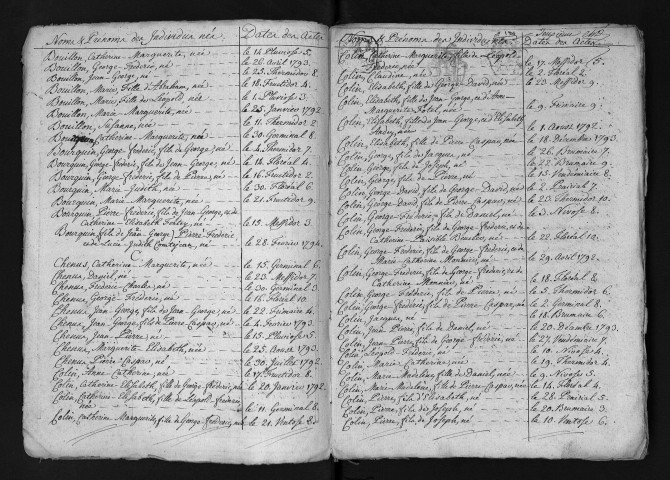 Noms & Prénoms des Individus nés. Dates des Actes
Bouillon, Catherine Marguerite, née le 14 Pluviose 5.
Bouillon, George Frédéric, né le 26 avril 1793.
Bouillon, Jean George, né le 25. Thermidor 8.
Bouillon, Marie, fille d'Abraham, née le 18. Fructidor 4.
Bouillon, Marie, fille de Léopold, née le 1. Pluviose 3.
Bouillon, Marie Marguerite, née le 25. Janvier 1792.
Bouillon, Susanne, née le 11. Thermidor 2.
Catherine Marguerite, née le 30. Germinal 8.
Bourquin, George Frédéric, fils de George, né le 4. Thermidor 7.
Bourquin, George Frédéric, fils de Jean George, né le 14. Floréal 4.
Bourquin, George Frédéric, fils de Pierre, né le 16. Fructidor 2.
Bourquin, Marie Judith, née le 30. Floréal 6.
Bourquin, Marie Marguerite, née le 21. Fructidor 9.
Bourquin, Pierre Frédéric, fils de Jean George, et de
Catherine Elisabeth né le 13. Messidor 3.
Bourquin, fils de Jean George Pierre Frédéric
et de Lucie Judith Contejean, né le 28. Fevrier 1794.
C
Chenus, Catherine Marguerite, née le 15. Germinal 6.
Chenus, Daniel, né le 23. Messidor 7.
Chenus, Frédéric Charles, né le 30. Germinal 3.
Chenus, George Frédéric, né le 16. Floréal 10.
Chenus, Jean George, fils de Jean George, né le 22. Frimaire 4.
Chenus, Jean George, fils de Pierre Caspar, né le 4. Fevrier 1793.
Chenus, Jean Pierre, né le 15. Pluviose 5.
Chenus, Marguerite Elisabeth, née le 25. Aout 1793.
Chenus, Pierre Caspar, né le 30. Juillet 1792.
Colin, Anne Catherine, née le 17. Fructidor 8.
Colin, Catherine Elisabeth, fille de George Frédéric, née le 20. Janvier 1792.
Colin, Catherine Elisabeth, fille de Léopold Frédéric
née le 11. Germinal 8.
Colin, Catherine Marguerite, fille de George Frédéric, née le 21. Ventose 8.
Noms & Prénoms des Individus nés. Dates des Actes
Colin, Catherine Marguerite, fille de Léopold
Frédéric, née le 17. Messidor 5.
Colin, Claudine, née le 2. Floréal 2.
Colin, Elisabeth, fille de George David, née le 23. Messidor 9.
Colin, Elisabeth, fille de Jean George, et d'Anne
Marguerite née le 9. Frimaire 9.
Colin, Elisabeth, fille de Jean George, et d'Elisabeth
née le 1. Aout 1792.
Colin, Elisabeth, fille de Pierre Caspar, née le 18. Décembre 1793.
Colin, George, fils de Jacques, né le 26. Brumaire 7.
Colin, George, fils de Joseph, né le 22. Brumaire 9.
Colin, George, fils de Pierre, né le 15. Vendémiaire 8.
Colin, George David, fils de George David, né le 2. Prairial 7.
Colin, George David, fils de Pierre Caspar, né le 23. Thermidor 10.
Colin, George Frédéric, fils de Daniel, né le 3. Nivose 8.
Colin, George Frédéric, fils de George Frédéric, et de
Catherine né le 22. Floréal 10.
Colin, George Frédéric, fils de George Frédéric, et de
Marie Catherine Monnier, né le 29. Avril 1792.
Colin, George Frédéric, fils de George Frédéric, et de
Catherine Monnier, né le 18. Floréal 8.
Colin, George Frédéric, fils de Pierre, né le 5. Thermidor 6.
Colin, George Frédéric, fils de Pierre Caspar, né le 2. Germinal 8.
Colin, Jacques, né le 18. Brumaire 5.
Colin, Jean Pierre, fils de Daniel, né le 20. Décembre 1793.
Colin, Jean Pierre, fils de George Frédéric, né le 27. Vendémiaire 7.
Colin, Léopold Frédéric, né le 10. Nivose 4.
Colin, Marie Catherine, née le 19. Thermidor 4.
Colin, Marie Madelaine, fille de Daniel, née le 9. Nivose 5.
Colin, Marie Madelaine, fille de Pierre Caspar, née le 14. Floréal 4.
Colin, Pierre, fils d'Elisabeth, né le 28. Prairial 5.
Colin, Pierre, fils de Joseph, né le 20. Brumaire 3.
Colin, Pierre, fils de Joseph, né le 10. Ventose 6.